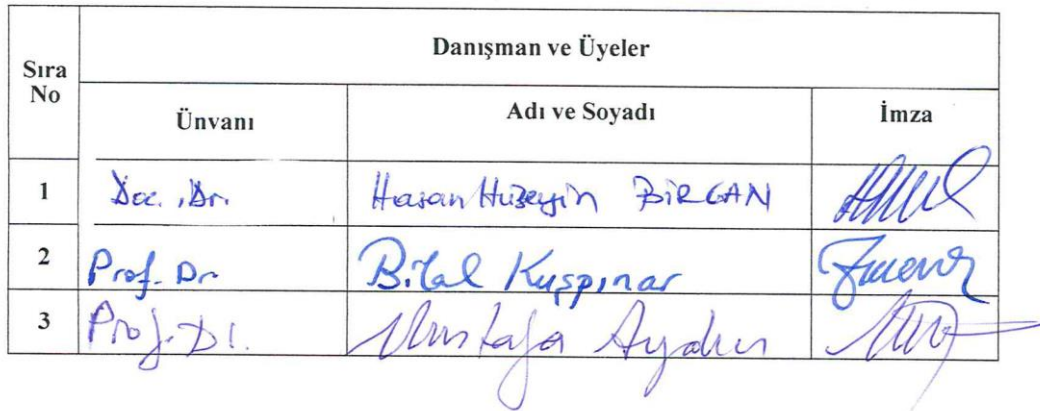 Sıra No
Danışman ve Üyeler
Ünvanı Adı ve Soyadı İmza
1 Doc. Dr. Hasan Hüseyin BİRGAN
2 Prof. Dr Bilal Kuşpınar
3 Prof. Dr. Mustafa Aydın